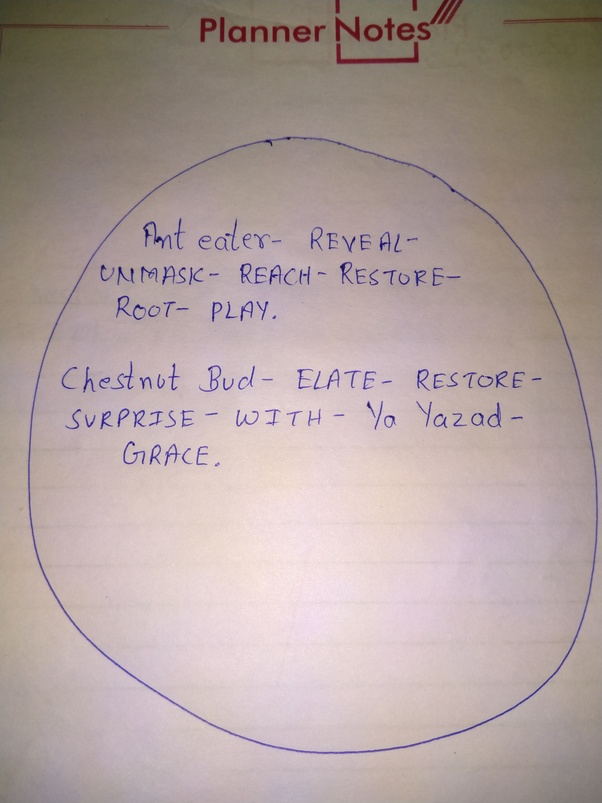 Planner Notes
Ant eater- REVEAL-
UNMASK- REACH- RESTORE-
ROOT- PLAY.
Chestnut Bud- ELATE- RESTORE-
SURPRISE- WITH- Ya Yazad-
GRACE.